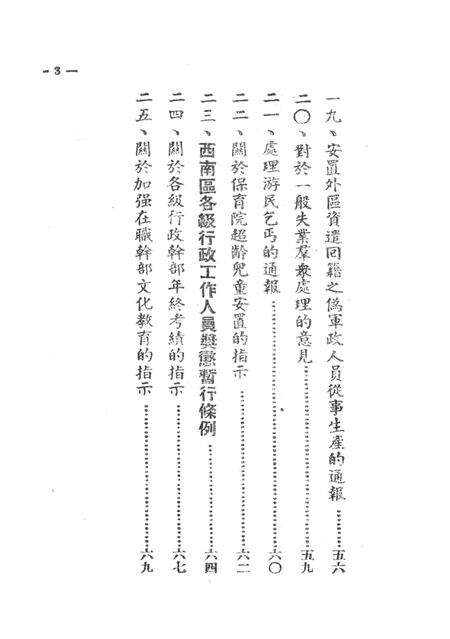 — 3 —
一九、安置外區資遣回籍之僞軍政人員從事生產的通報…………五六
二〇、對於一般失業羣衆處理的意見…………五九
二一、處理游民乞丐的通報…………六〇
二二、關於保育院超齡兒童安置的指示…………六二
二三、西南區各級行政工作人員獎懲暫行條例…………六四
二四、關於各級行政幹部年終考績的指示…………六七
二五、關於加强在職幹部文化教育的指示…………六九